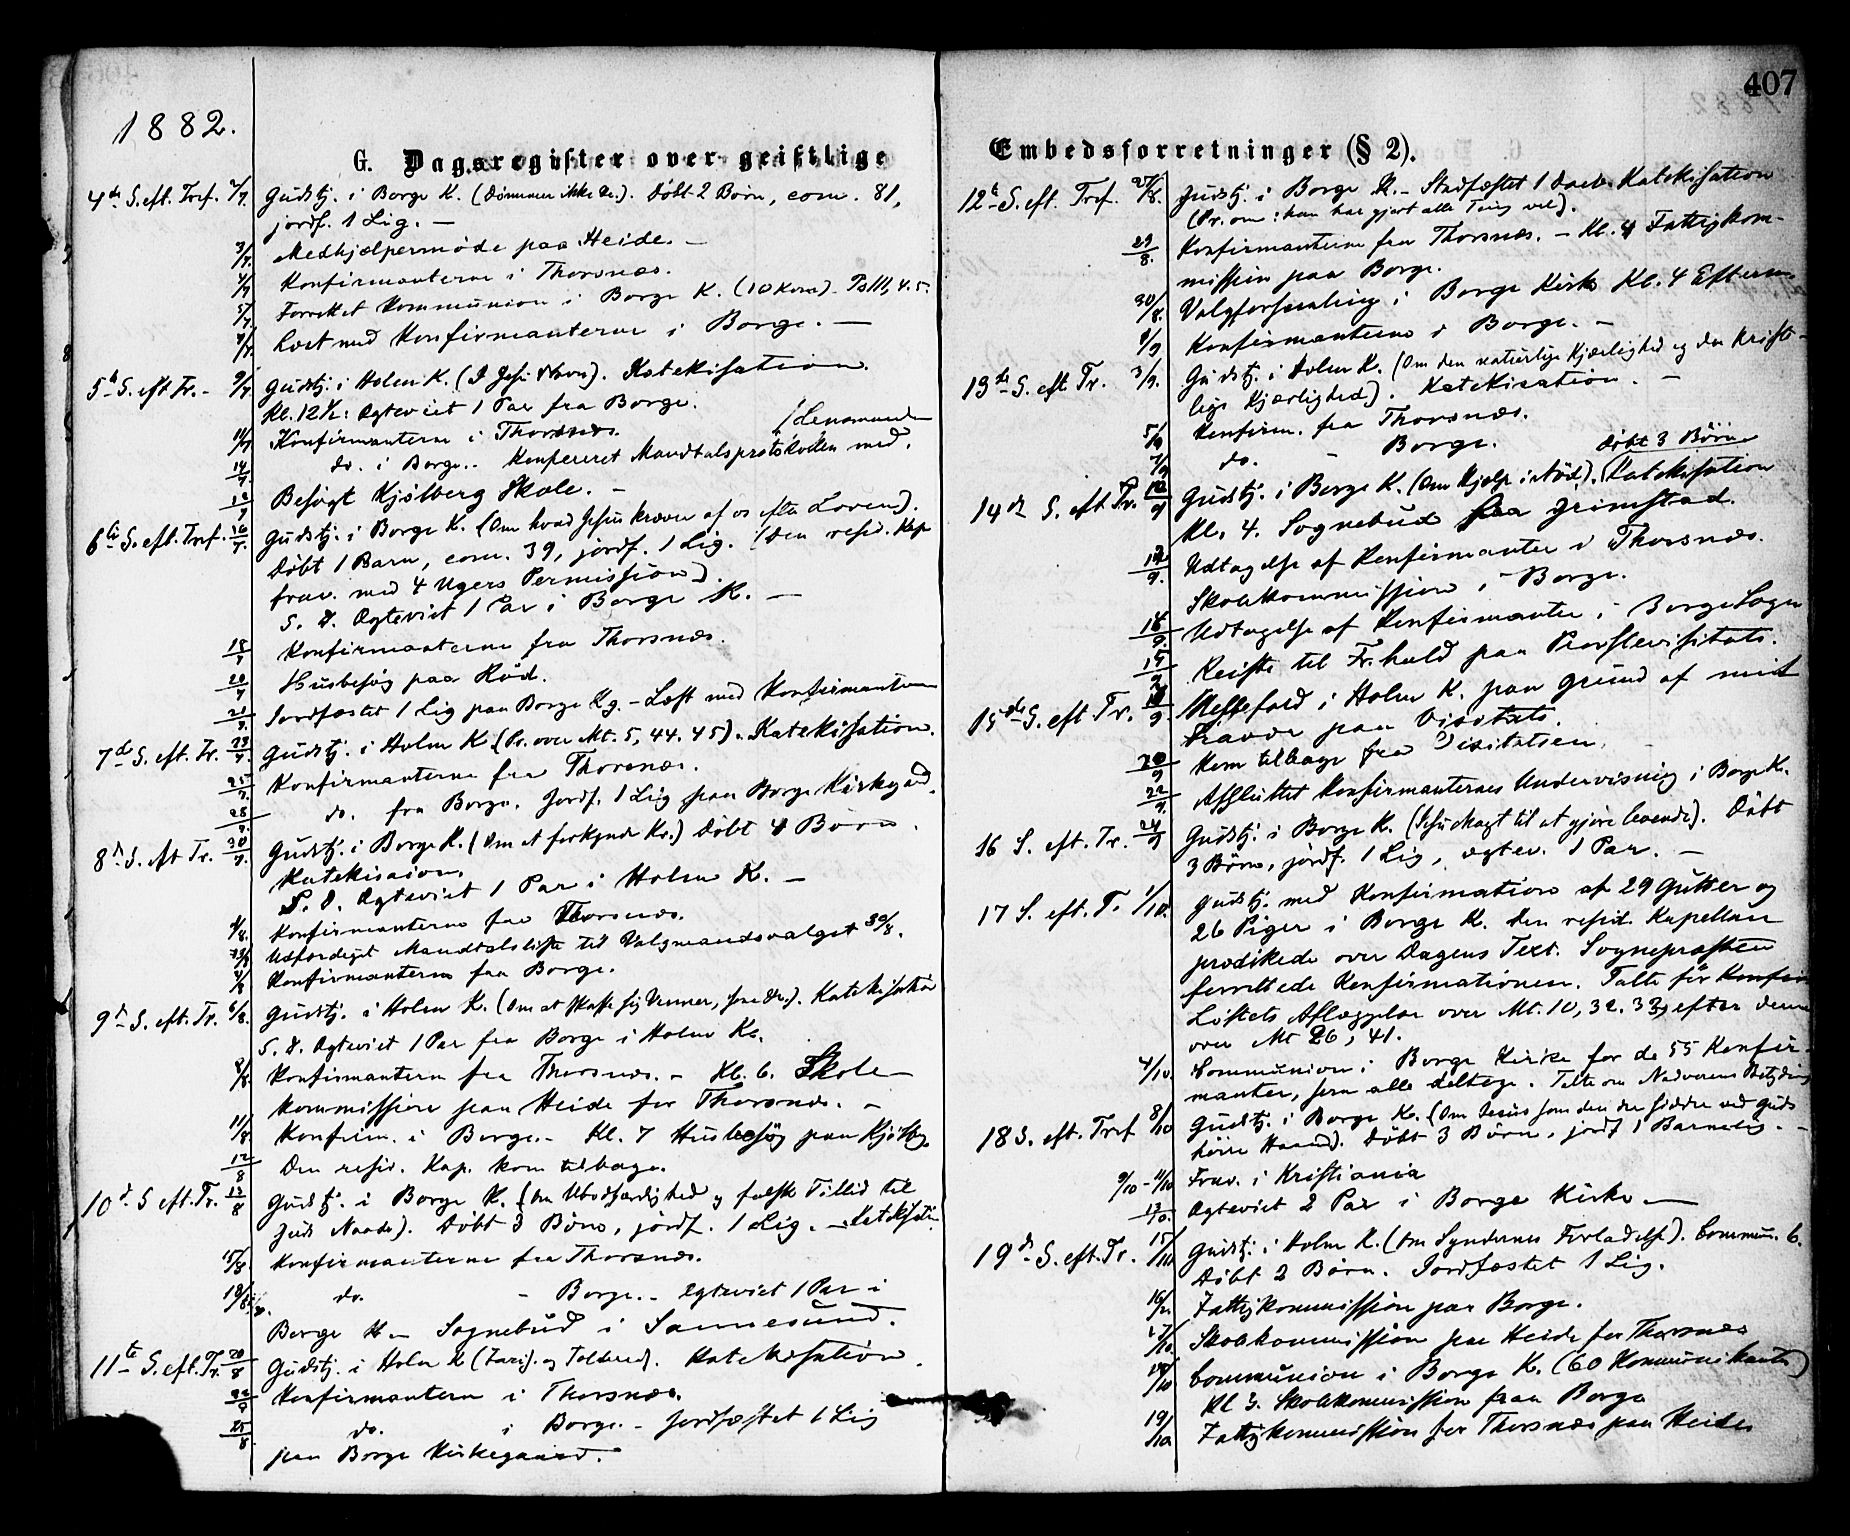 407
1882.
G. Dagsregister over geistlige
4de S. eft. Tref. 2/7. Gudstj. i Borge K. (Dömmer ikke &c.). Döbt 2 Börn, com. 81,
jordf. 1 Lig. —
3/7. Medhjælpermöde paa Heide. —
4/7 Konfirmanterne i Thorsnæs.
5/7 Forrettet Kommunion i Borge K. (10 Kom.)
7/7. Læst med Konfirmanterne i Borge. —
5te S. eft Tr. - 9/7 Gudstj. i Holm K. (I Jesu Navn). Katekisation.
Kl. 12½: Ægteviet 1 Par fra Borge.
11/7 Konfirmanterne i Thorsnæs. (Lensmanden
14/7. do. i Borge. - Konfereret Mandtalsprotokollen med.
Besögt Kjölberg Skole. —
6te S. eft. Tref. 16/7. Gudstj. i Borge K. (Om hvad Jesus kræver af os efter Loven).
Döbt 1 Barn, com. 39, jordf. 1 Lig. (Den resid. Kap
frav. med 4 Ugers Permission).
S. D. Ægteviet 1 Par i Borge K. —
18/7 Konfirmanterne fra Thorsnæs.
20/7 Husbesög paa Röd.
21/7. Jordfæstet 1 Lig paa Borge Kg. - Læst med Konfirmanterne
7de S. eft. Tr. 23/7. Gudstj. i Holm K. (Pr. over Mt. 5, 44. 45). Katekisation.
25/7. Konfirmanterne fra Thorsnæs.
28/7. do. fra Borge. Jordf. 1 Lig paa Borge Kirkegrd.
8de S. eft Tr. 30/7. Gudstj. i Borge K. (Om at forkynde Kr.) Döbt 4 Börn.
Katekisaion.
S. D. Ægteviet 1 Par i Holm K. —
1/8. Konfirmanterne fra Thorsnæs.
Udfærdiget Mandtalsliste til Valgmandsvalget 30/8.
4/8 Konfirmanterne fra Borge.
9de S. eft. Tr. 6/8. Gudstj. i Holm K. (Om at skaffe sig Venner, &c.). Katekisation
S. D. Ægteviet 1 Par fra Borge i Holm K.
8/8 Konfirmanterne fra Thorsnæs. - Kl. 6. Skole-
kommission paa Heide for Thorsnæs. —
11/8 Konfirm. i Borge. - Kl. 7 Husbesög paa Kjölbg.
12/8 Den resid. Kap. kom tilbage.
10de S eft. Tr. 13/8 Gudstj. i Borge K. (Om Ubodfærdighed og falsk Tillid til
Guds Naade). Döbt 3 Börn, jordf. 1 Lig. - Katekisati.
15/8. Konfirmanterne fra Thorsnæs.
18/8. do. - Borge. - Ægteviet 1 Par i
Borge K - Sognebud i Sannesund.
11te S. eft. Tr. 20/8 Gudstj. i Holm K (Faris. og Tolderen). Katekisation.
22/8 Konfirmanterne i Thorsnæs.
25/8. do. i Borge. - Jordfæstet 1 Lig
paa Borge Kirkegaard.
Embedsforretninger (§ 2).
12te S. eft. Tref. 27/8. Gudstj. i Borge K. - Stadfæstet 1 Daab. Katekisation
(Pr. om: han har gjort alle Ting vel).
29/8. Konfirmanterne fra Thorsnæs. - Kl. 4 Fattigkom-
mission paa Borge.
30/8. Valgforsamling i Borge Kirke Kl. 4 Efterm.
1/9 Konfirmanterne i Borge. —
13de S. eft Tr. 3/9. Gudstj. i Holm K. (Om den naturlige Kjærlighed og den kriste-
lige Kjærlighed). Katekisation. —
5/9 Konfirm. fra Thorsnæs.
7/9 do. - Borge. Döbt 3 Börn
14de S. eft Tr. 10/9 Gudstj. i Borge K. (Om Hjælp i Nöd). (Katekisation
Kl. 4. Sognebud paa Grimstad.
12/9. Udtagelse af Konfirmanter i Thorsnæs.
Skolekommission i Borge.
Udtagelse af Konfirmanter i Borge Sogn
15/9 Reiste til Fr.hald paa Provstevisitats.
15de S. eft Tr. 17/9 Messefald i Holm K. paa Grund af mit
Fravær paa Visitats.
20/9 Kom tilbage fra Visitatsen.
22/9. Afsluttet Konfirmanternes Undervisning i Borge K.
16 S. eft. Tr. 24/9 Gudstj. i Borge K. (Jesu Magt til at gjöre levende). Döbt
3 Börn, jordf. 1 Lig, ægtev. 1 Par. —
17 S. eft. T. 1/10. Gudstj. med Konfirmation af 29 Gutter og
26 Piger i Borge K. Den resid. Kapellan
prædikede over Dagens Text. Sognepræsten
forrettede Konfirmationen. Talte för Konfir
Löftets Aflæggelse over Mt. 10, 32. 33, efter denne
over Mt 26, 41.
4/10. Communion i Borge Kirke for de 55 Konfir-
manter, som alle deltoge. Talte om Nadverens Betydning
18 S. eft. Tref 8/10 Gudstj. i Borge K. (Om Jesus som den der sidder ved Guds
höire Haand). Döbt 3 Börn, jordf 1 Barnelig. —
9/10 - 11/10 Frav. i Kristiania
13/10. Ægteviet 2 Par i Borge Kirke —
19de S. eft. Tr. 15/10 Gudstj. i Holm K. (Om Syndernes Forladelse). Commun. 6.
Döbt 2 Börn. Jordfæstet 1 Lig.
16/10. Fattigkommission paa Borge.
17/10. Skolekommission paa Heide for Thorsnæs
18/10 Communion i Borge K. (60 Kommunikanter)
Kl 3. Skolekommission paa Borge
19/10 Fattigkommission for Thorsnæs paa Heide